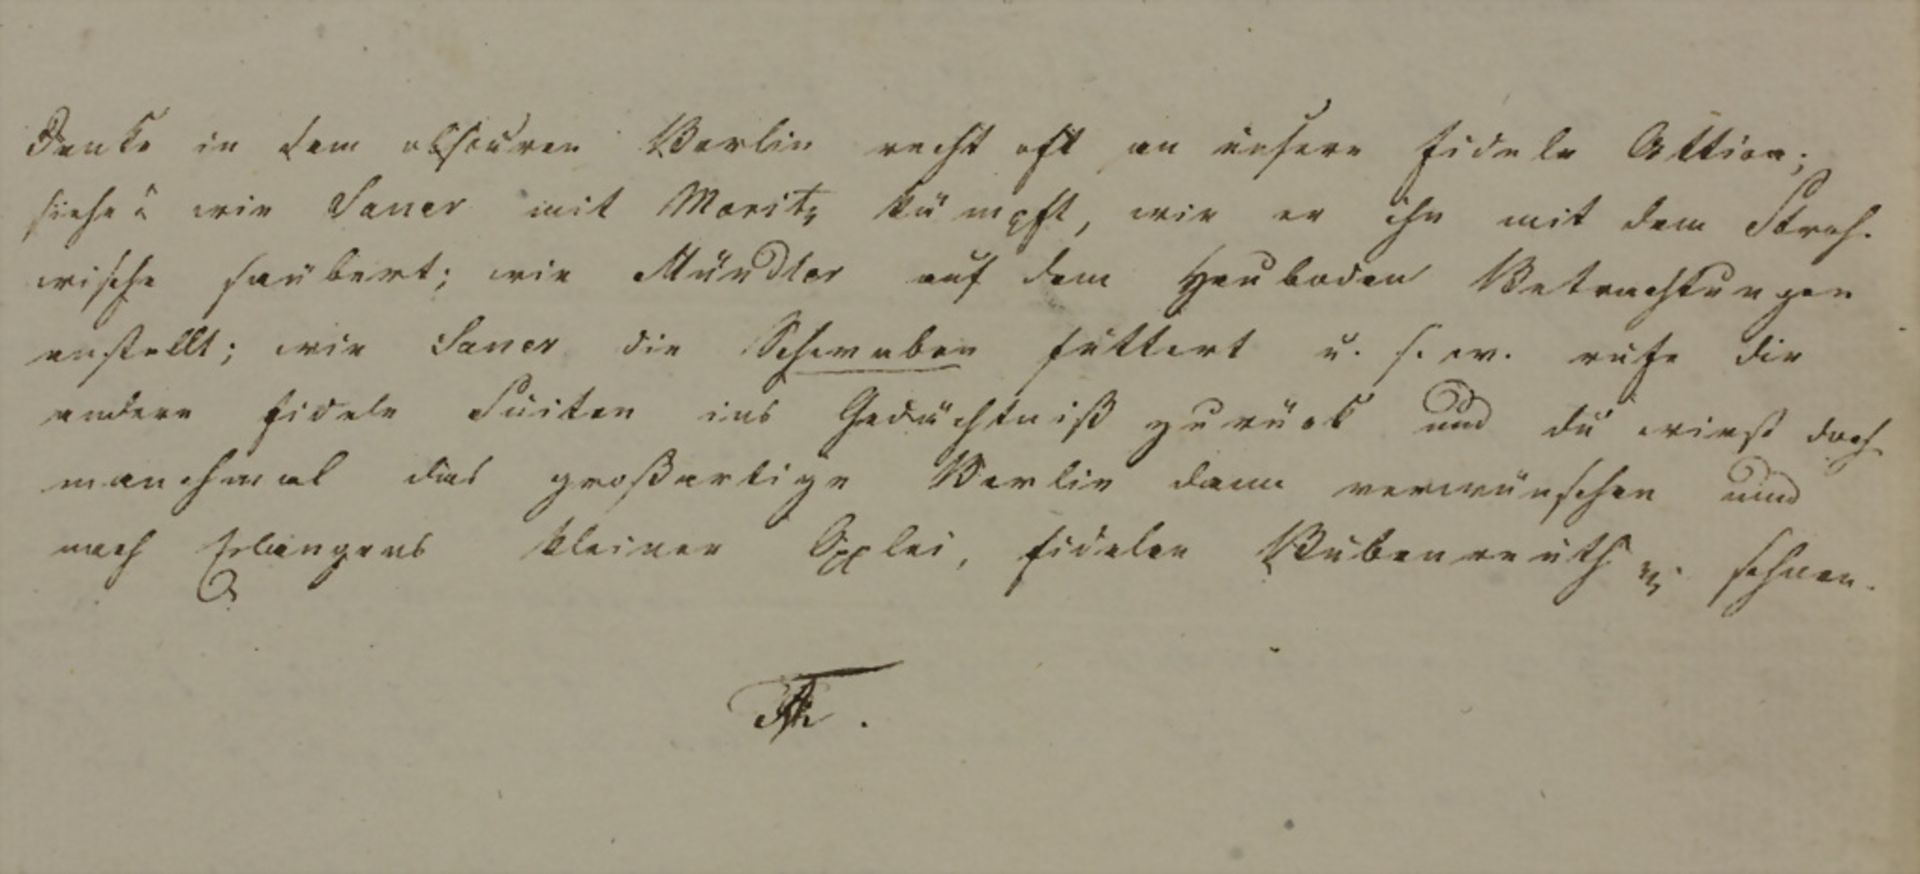 Denke in dem obscuren Berlin recht oft an unsere fidele Attica;
siehe wie Sauer mit Moritz kämpft, wie er ihn mit dem Stroh-
wische säubert; wie Mündler auf dem Heuboden Betrachtungen
anstellt; wie Sauer die Schwaben füttert u. s. w. rufe die
andern fidele Suiten ins Gedächtniß zurück und du wirst doch
manchmal das großartige Berlin dann verwünschen und
nach Erlangens kleiner fidelen Bubenreuth sehnen.